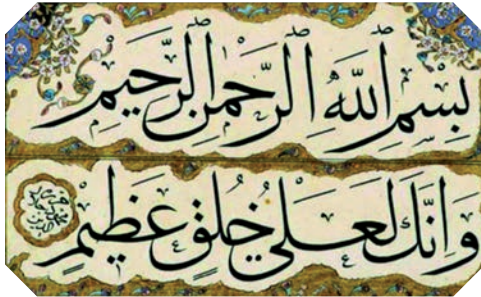 بِسْمِ اللّٰهِ الرَّحْمٰنِ الرَّحِيْمِ
وَاِنَّكَ لَعَلٰى خُلُقٍ عَظِيْمٍ